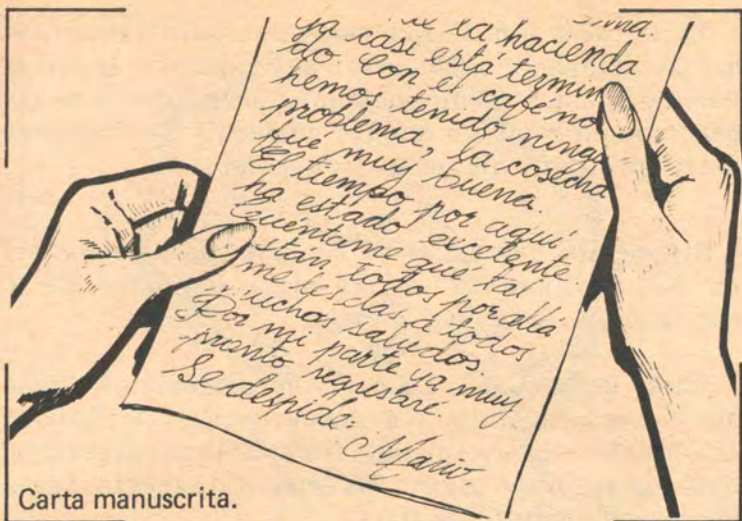 la hacienda
ya casi está termin
do Con el café no
hemos tenido ning
problema, la cosecha
fué muy buena.
El tiempo por aquí
ha estado excelente.
Cuéntame qué tal
stan todos por allá
me les das a todos
muchos saludos.
Por mi parte ya muy
pronto regresaré.
Se despide:
Mario.
Carta manuscrita.